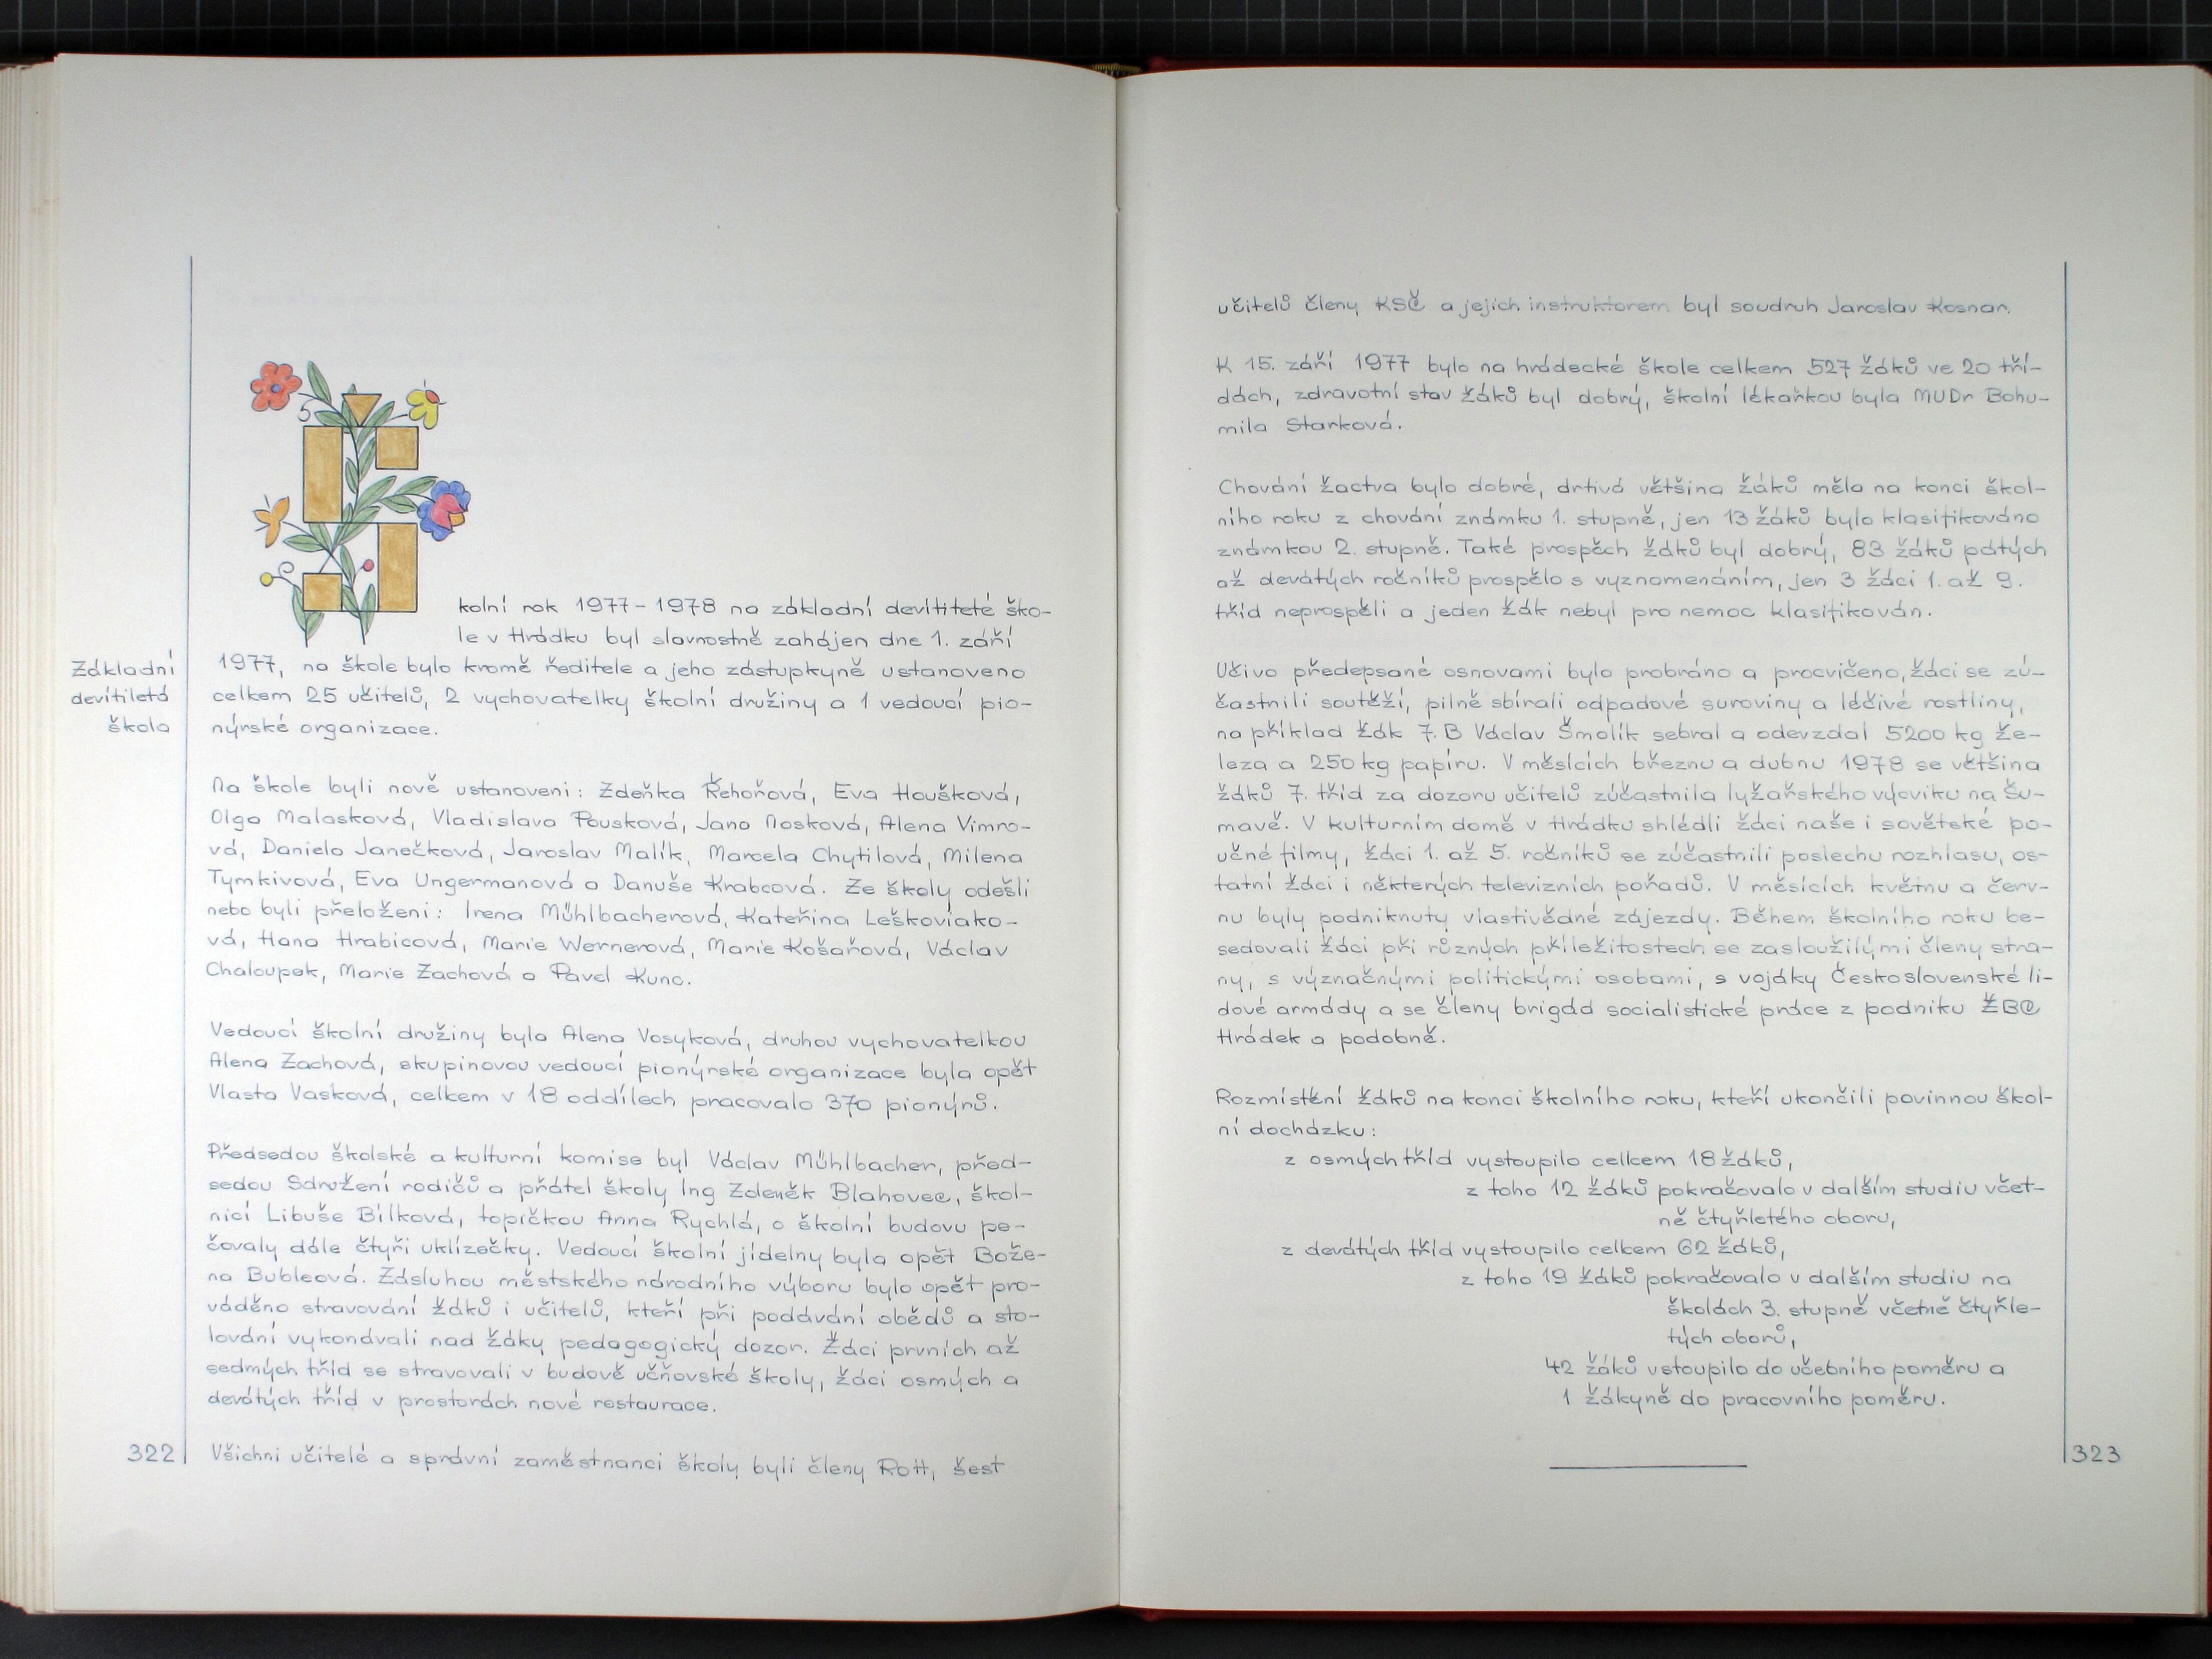 Školní rok 1977-1978 na základní devítiteté ško-
le v Hrádku byl slavnostně zahájen dne 1. září
Základní
devítiletá
škola
1977, na škole bylo kromě ředitele a jeho zástupkyně ustanoveno
celkem 25 učitelů, 2 vychovatelky školní družiny a 1 vedoucí pio-
nýrské organizace.
Na škole byli nově ustanoveni: Zdeňka Řehořová, Eva Houšková,
Olga Malasková, Vladislava Pousková, Jana Nosková, Alena Vimro-
vá, Daniela Janečková, Jaroslav Malík, Marcela Chytilová, Milena
Tymkivová, Eva Ungermanová a Danuše Krabcová. Ze školy odešli
nebo byli přeloženi: Irena Mühlbacherová, Kateřina Leškoviako-
vá, Hana Hrabicová, Marie Wernerová, Marie Košařová, Václav
Chaloupek, Marie Zachová a Pavel Kunc.
Vedoucí školní družiny byla Alena Vosyková, druhou vychovatelkou
Alena Zachová, skupinovou vedoucí pionýrské organizace byla opět
Vlasta Vasková, celkem v 18 oddílech pracovalo 370 pionýrů.
Předsedou školské a kulturní komise byl Václav Mühlbacher, před-
sedou Sdružení rodičů a přátel školy Ing Zdeněk Blahovec, škol-
nicí Libuše Bílková, topičkou Anna Rychlá, o školní budovu pe-
čovaly dále čtyři uklízečky. Vedoucí školní jídelny byla opět Bože-
na Bubleová. Zásluhou městského národního výboru bylo opět pro-
váděno stravování žáků i učitelů, kteří při podávání obědů a sto-
lování vykonávali nad žáky pedagogický dozor. Žáci prvních až
sedmých tříd se stravovali v budově učňovské školy, žáci osmých a
devátých tříd v prostorách nové restaurace.
Všichni učitelé a správní zaměstnanci školy byli členy RoH, šest
322
učitelů členy KSČ a jejich instruktorem byl soudruh Jaroslav Kosnar.
K 15. září 1977 bylo na hrádecké škole celkem 527 žáků ve 20 tří-
dách, zdravotní stav žáků byl dobrý, školní lékařkou byla MUDr Bohu-
mila Starková.
Chování žactva bylo dobré, drtivá většina žáků měla na konci škol-
ního roku z chování známku 1. stupně, jen 13 žáků bylo klasifikováno
známkou 2. stupně. Také prospěch žáků byl dobrý, 83 žáků pátých
až devátých ročníků prospělo s vyznamenáním, jen 3 žáci 1. až 9.
tříd neprospěli a jeden žák nebyl pro nemoc klasifikován.
Učivo předepsané osnovami bylo probráno a procvičeno, žáci se zú-
častnili soutěží, pilně sbírali odpadové suroviny a léčivé rostliny,
na příklad žák 7. B Václav Šmolík sebral a odevzdal 5200 kg že-
leza a 250 kg papíru. V měsících březnu a dubnu 1978 se většina
žáků 7. tříd za dozoru učitelů zúčastnila lyžařského výcviku na Šu-
mavě. V kulturním domě v Hrádku shlédli žáci naše i sovětské po-
učné filmy, žáci 1. až 5. ročníků se zúčastnili poslechu rozhlasu, os-
tatní žáci i některých televizních pořadů. V měsících květnu a červ-
nu byly podniknuty vlastivědné zájezdy. Během školního roku be-
sedovali žáci při různých příležitostech se zasloužilými členy stra-
ny, s význačnými politickými osobami, s vojáky Československé li-
dové armády a se členy brigád socialistické práce z podniku ŽBC
Hrádek a podobně.
Rozmístění žáků na konci školního roku, kteří ukončili povinnou škol-
ní docházku:
z osmých tříd vystoupilo celkem 18 žáků,
z toho 12 žáků pokračovalo v dalším studiu včet-
ně čtyřletého oboru,
z devátých tříd vystoupilo celkem 62 žáků,
z toho 19 žáků pokračovalo v dalším studiu na
školách 3. stupně včetně čtyřle-
tých oborů,
42 žáků vstoupilo do učebního poměru a
1 žákyně do pracovního poměru.
323